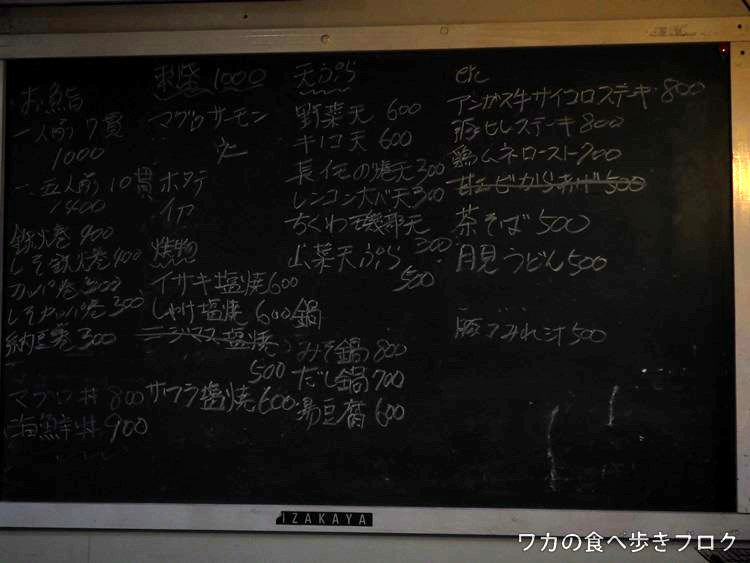 お鮨
一人前 7貫
1000
一.五人前 10貫
1400
鉄火巻 400
しそ鉄火巻 400
カッパ巻 300
しそカッパ巻 300
納豆巻 300
マグロ丼 800
海鮮丼 900
1000
マグロ サーモン
ホタテ
焼物
イサキ塩焼 600
しゃけ塩焼 600
ニジマス塩焼
500
サワラ塩焼 600
天ぷら
野菜天 600
キノコ天 600
長イモの磯天 300
レンコン大バ天 300
ちくわ磯部天
300
山菜天ぷら
500
鍋
みそ鍋 800
だし鍋 700
湯豆腐 600
etc
アンガス牛サイコロステーキ 800
豚ヒレステーキ 800
鶏ムネロースト 700
甘エビからあげ 500
茶そば 500
月見うどん 500
豚つみれ汁 500
IZAKAYA
ワカの食べ歩きブログ